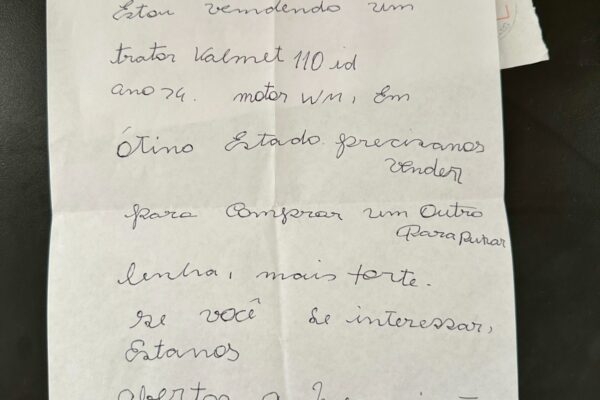 Estou vendendo um
trator Valmet 110 id
ano 74. motor WM, Em
Ótino Estado precisanos
vender
para comprar um outro
para puxar
lenha, mais forte.
se você se interessar,
Estanos
abertos a